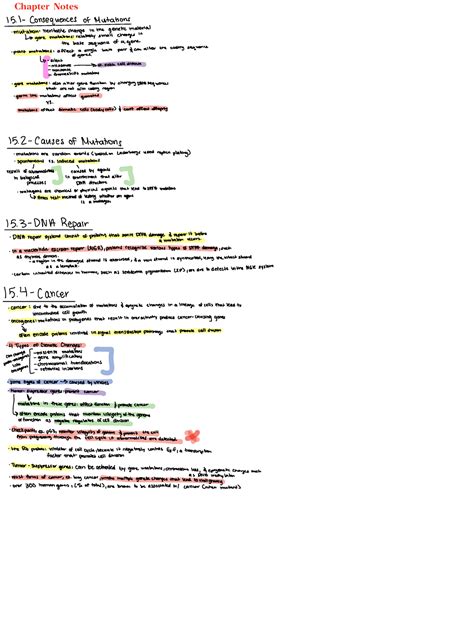 Chapter Notes
15.1- Consequences of Mutations
· mutation: heritable change in the genetic material
↳ gene mutations: relatively small changes in
the base sequence of a gene
· point mutations: affect a single base pair & can alter the coding sequence
of genes
- silent
- missense
- nonsense
- frameshift mutation
· gene mutations: also alter gene function by changing gene sequences
that are not w/in coding region
· germ line mutations affect gametes
vs.
mutations affect somatic cells (body cells) & can't affect offspring
15.2- Causes of Mutations
· mutations are random events (based on Lederbergs used replica plating)
· spontaneous vs. induced mutations
result of abnormalities
in biological
processes
caused by agents
in environment that alter
DNA structure
· mutagens are chemical or physical agents that lead to mutations
↳ Ames test: method of testing whether an agent
is a mutagen
15.3- DNA Repair
· DNA repair systems consist of proteins that sense DNA damage & repair it before
a mutation occurs
· in a nucleotide excision repair (NER), proteins recognize various types of DNA damage, such
as thymine dimers
- a region in the damaged strand is excised, & a new strand is synthesized, using the intact strand
as a template
· certain inherited diseases in humans, such as xeroderma pigmentosum (XP), are due to defects in the NER system
15.4- Cancer
· cancer: due to the accumulation of mutations & epigenetic changes in a lineage of cells that lead to
uncontrolled cell growth
· oncogenes: mutations in
that result in
cancer-causing genes
often encode proteins involved in signal transduction pathways that promote cell division
Types of Genetic Changes:
- missense mutations
- gene amplifications
- chromosomal translocations
- retroviral insertions
· some types of cancer → caused by viruses
· tumor-suppressor genes prevent cancer
mutations in these genes: affect function & promote cancer
↳ often encode proteins that maintain integrity of the genome
or function as negative regulators of cell division
· checkpoints
monitor integrity of genome & prevent the cell
from progressing through the cell cycle if abnormalities are detected
protein: inhibitor of cell cycle, because it negatively controls E2F, a transcription
factor that promotes cell division
· Tumor-suppressor genes: can be
by gene mutations, chromosome loss, & epigenetic changes such
as DNA methylation
· most forms of cancer,
lung cancer, involve multiple genetic changes that lead to malignancy
· over 300 human genes
are known to be associated w/ cancer (when mutated)